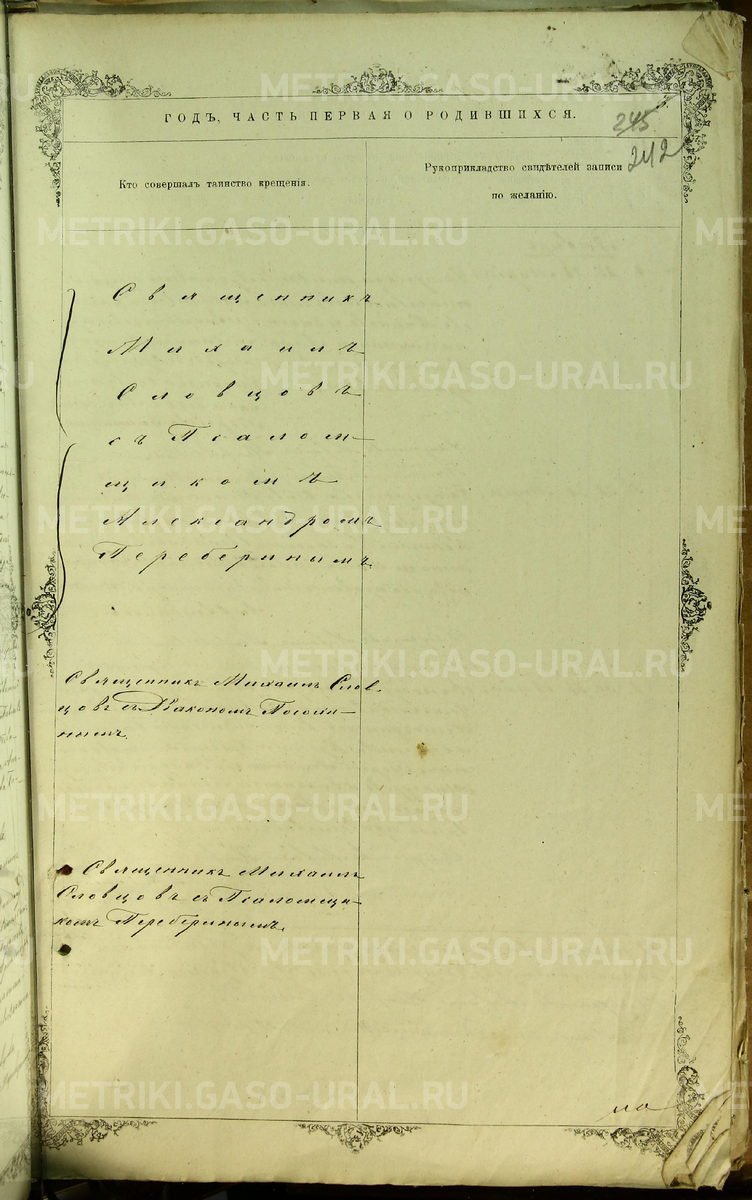 METRIKI.GASO-URAL.RU
ГОДЪ, ЧАСТЬ ПЕРВАЯ О РОДИВШИХСЯ.
245
242
Кто совершалъ таинство крещенія.
Рукоприкладство свидѣтелей записи
по желанію.
Священникъ
Михаилъ
Словцовъ
съ Псалом-
щикомъ
Александромъ
Переберинымъ
Священникъ Михаилъ Слов-
цовъ съ Діакономъ
нымъ.
Священникъ Михаилъ
Словцовъ съ Псаломщи-
комъ Переберинымъ.